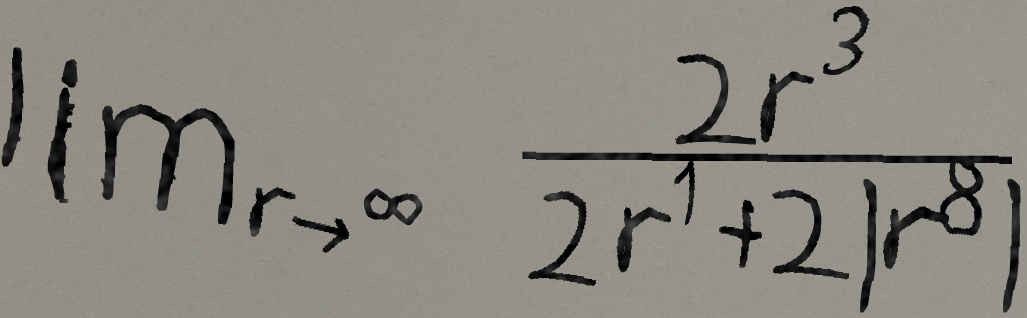 \lim_{r \to \infty} \frac{2r^3}{2r^1+2|r^8|}